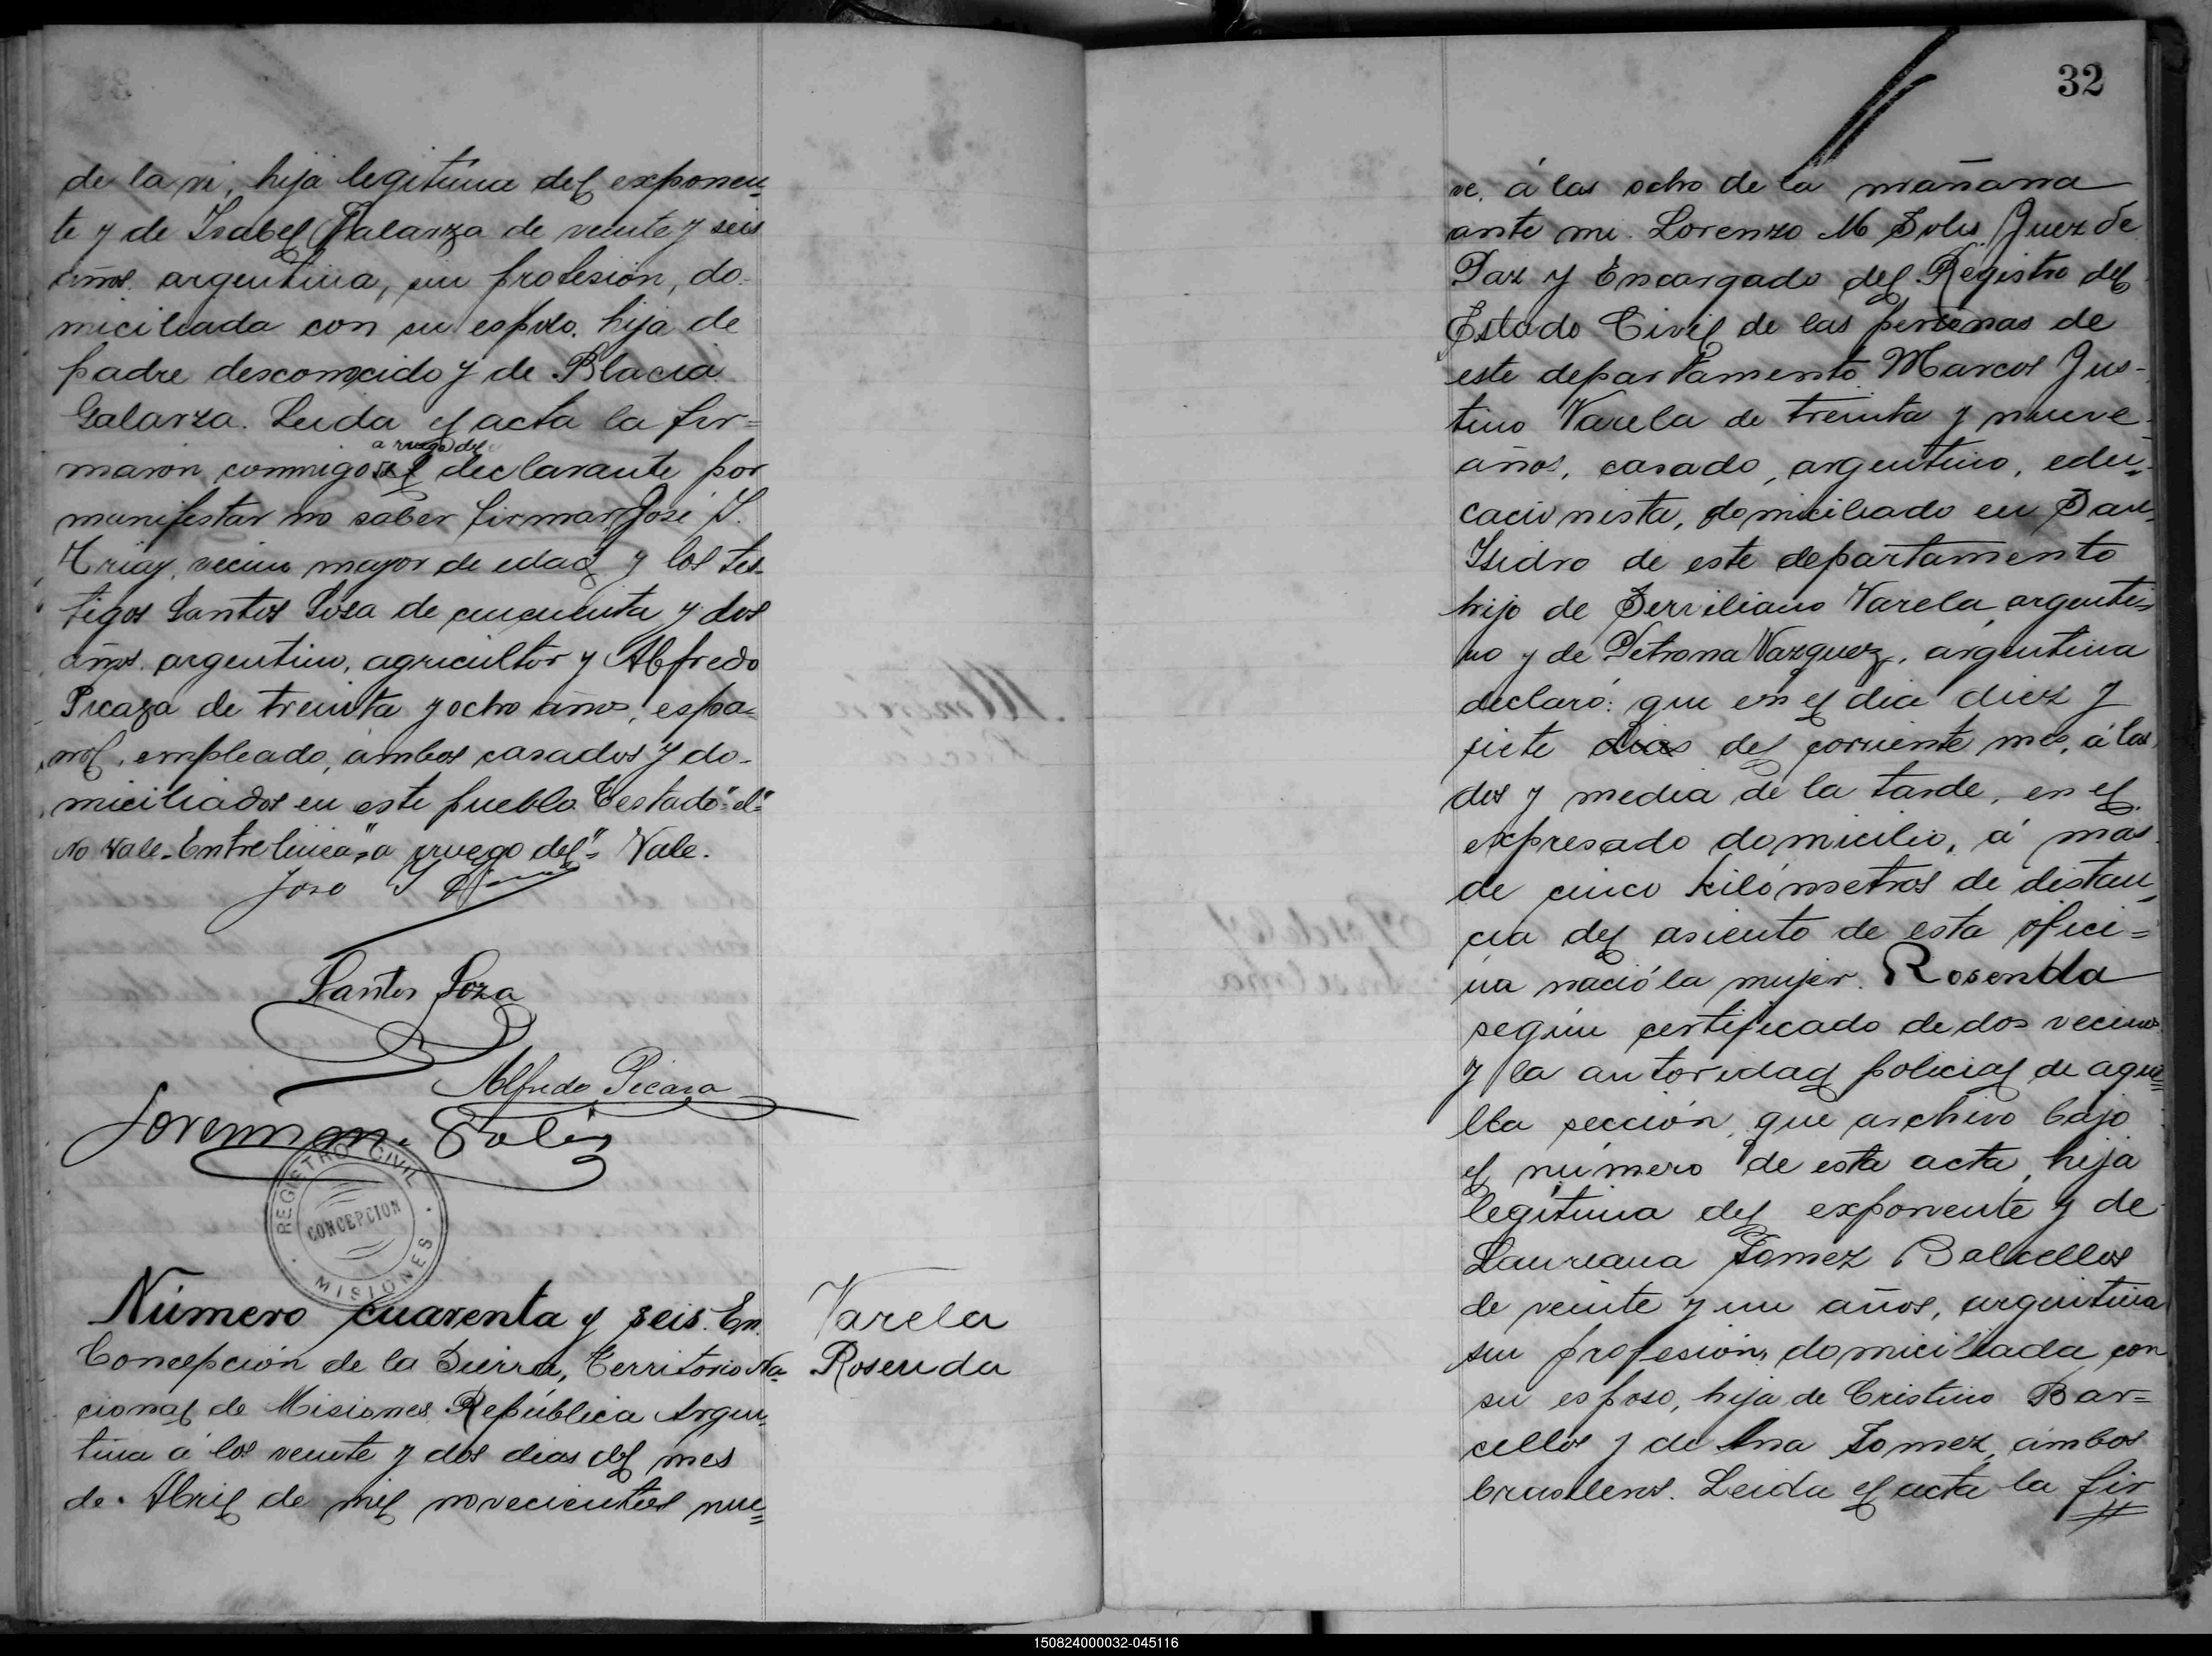 de la ni, hija legitima del exponen-
te y de Isabel Galarza de veinte y seis
años, argentina, sin profesión, do-
miciliada con su esposo, hija de
padre desconocido y de Blacia
Galarza. Leida el acta la fir=
a ruego del
maron conmigo el declarante por
manifestar no saber firmar José
vecino mayor de edad y los tes-
tigos Santos Sosa de cincuenta y dos
años, argentino, agricultor y Alfredo
Picaza de treinta y ocho años, espa-
ñol, empleado, ámbos casados y do-
miciliados en este pueblo Testado "el"
No Vale - Entre linea "a ruego del" Vale.
Santos Soza
Alfredo Picasa
Solis
REGISTRO CIVIL
CONCEPCION
MISIONES
Número cuarenta y seis. En
Concepción de la Sierra, Territorio Na-
cional de Misiones, República Argen-
tina á los veinte y dos dias del mes
de Abril de mil novecientos nue=
Varela
Rosenda
32
ve, á las ocho de la mañana
ante mi Lorenzo M Solis, Juez de
Paz y Encargado del Registro del
Estado Civil de las personas de
este departamento Marcos Jus-
tino Varela de treinta y nueve
años, casado, argentino, edu-
cacionista, domiciliado en San
Isidro de este departamento
hijo de Serviliano Varela, argenti-
no y de Petrona Vazquez, argentina
declaró: que en el dia diez y
siete dias del corriente mes, á las
dos y media de la tarde, en el
expresado domicilio, á mas
de cinco kilómetros de distan-
cia del asiento de esta ofici=
na nació la mujer Rosenda
según certificado de dos vecinos
y la autoridad policial de aque=
lla sección, que archivo bajo
el número de esta acta, hija
legitima del exponente y de
Laureana Gomez Balcellos
de veinte y un años, argentina
sin profesión, domiciliada con
su esposo, hija de Cristino Bar=
cellos y de Ana Gomez, ámbos
brasileros. Leida el acta la fir
150824000032-045116